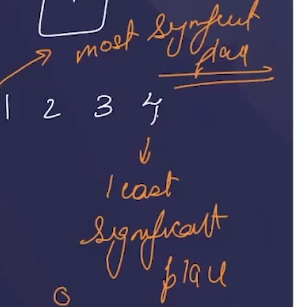 most significant
place
1 2 3 4
least
significant
place